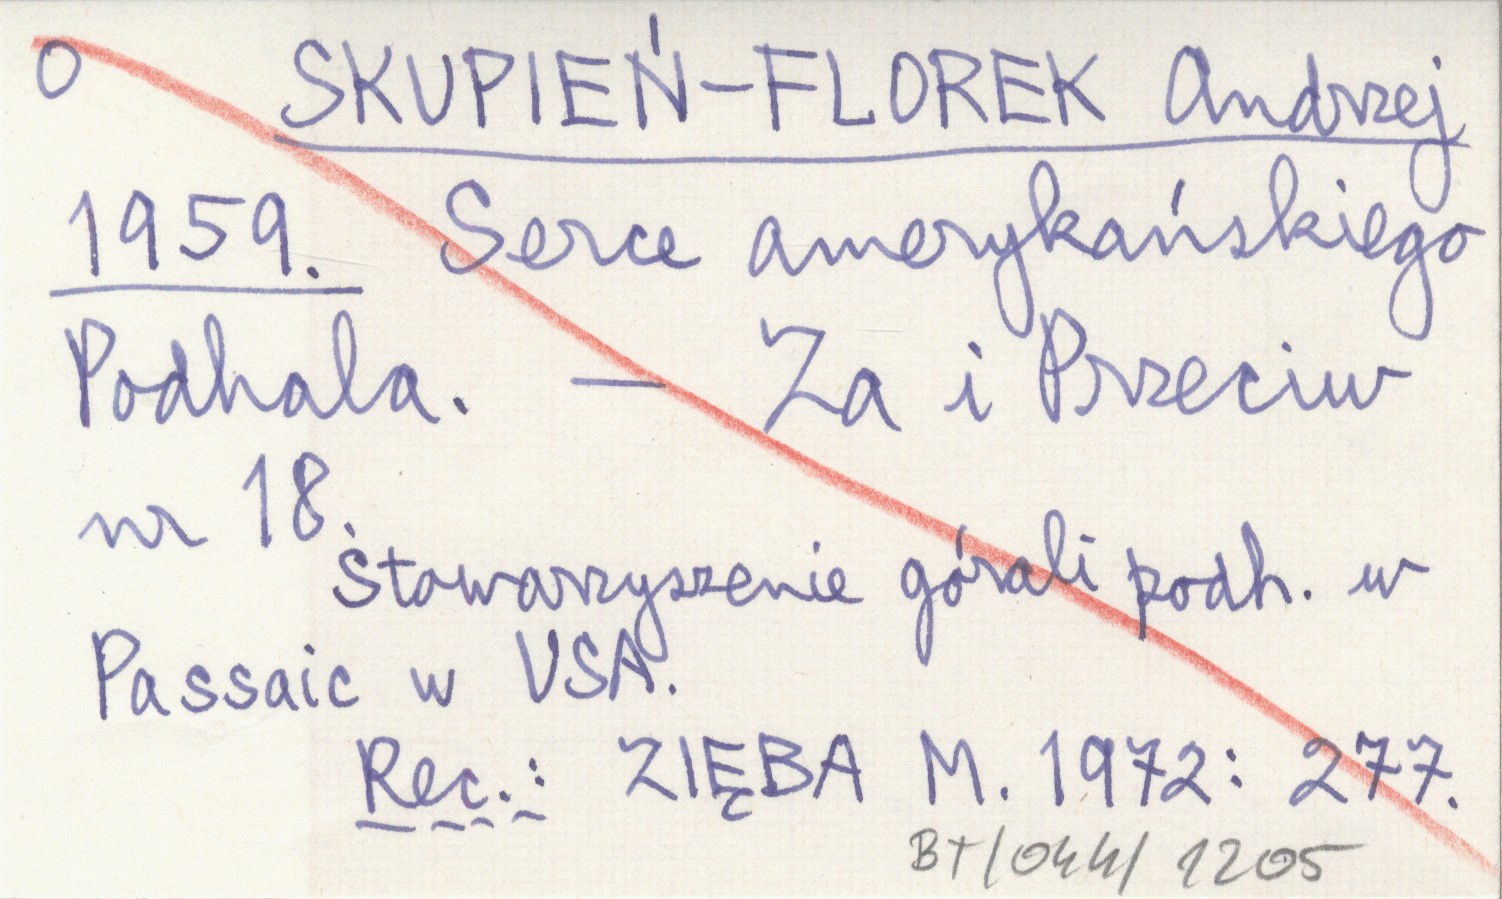 O SKUPIEŃ-FLOREK Andrzej
1959. Serce amerykańskiego
Podhala. — Za i Przeciw
nr 18.
Stowarzyszenie górali podh. w
Passaic w USA.
Rec.: ZIĘBA M. 1972: 277.
BT/044/ 1205